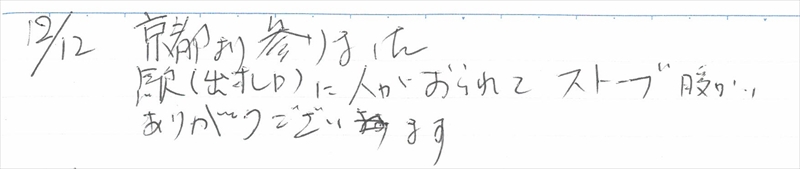 12/12 京都より参りました
駅(出札口)に人がおられて ストーブ暖かい
ありがとうございます